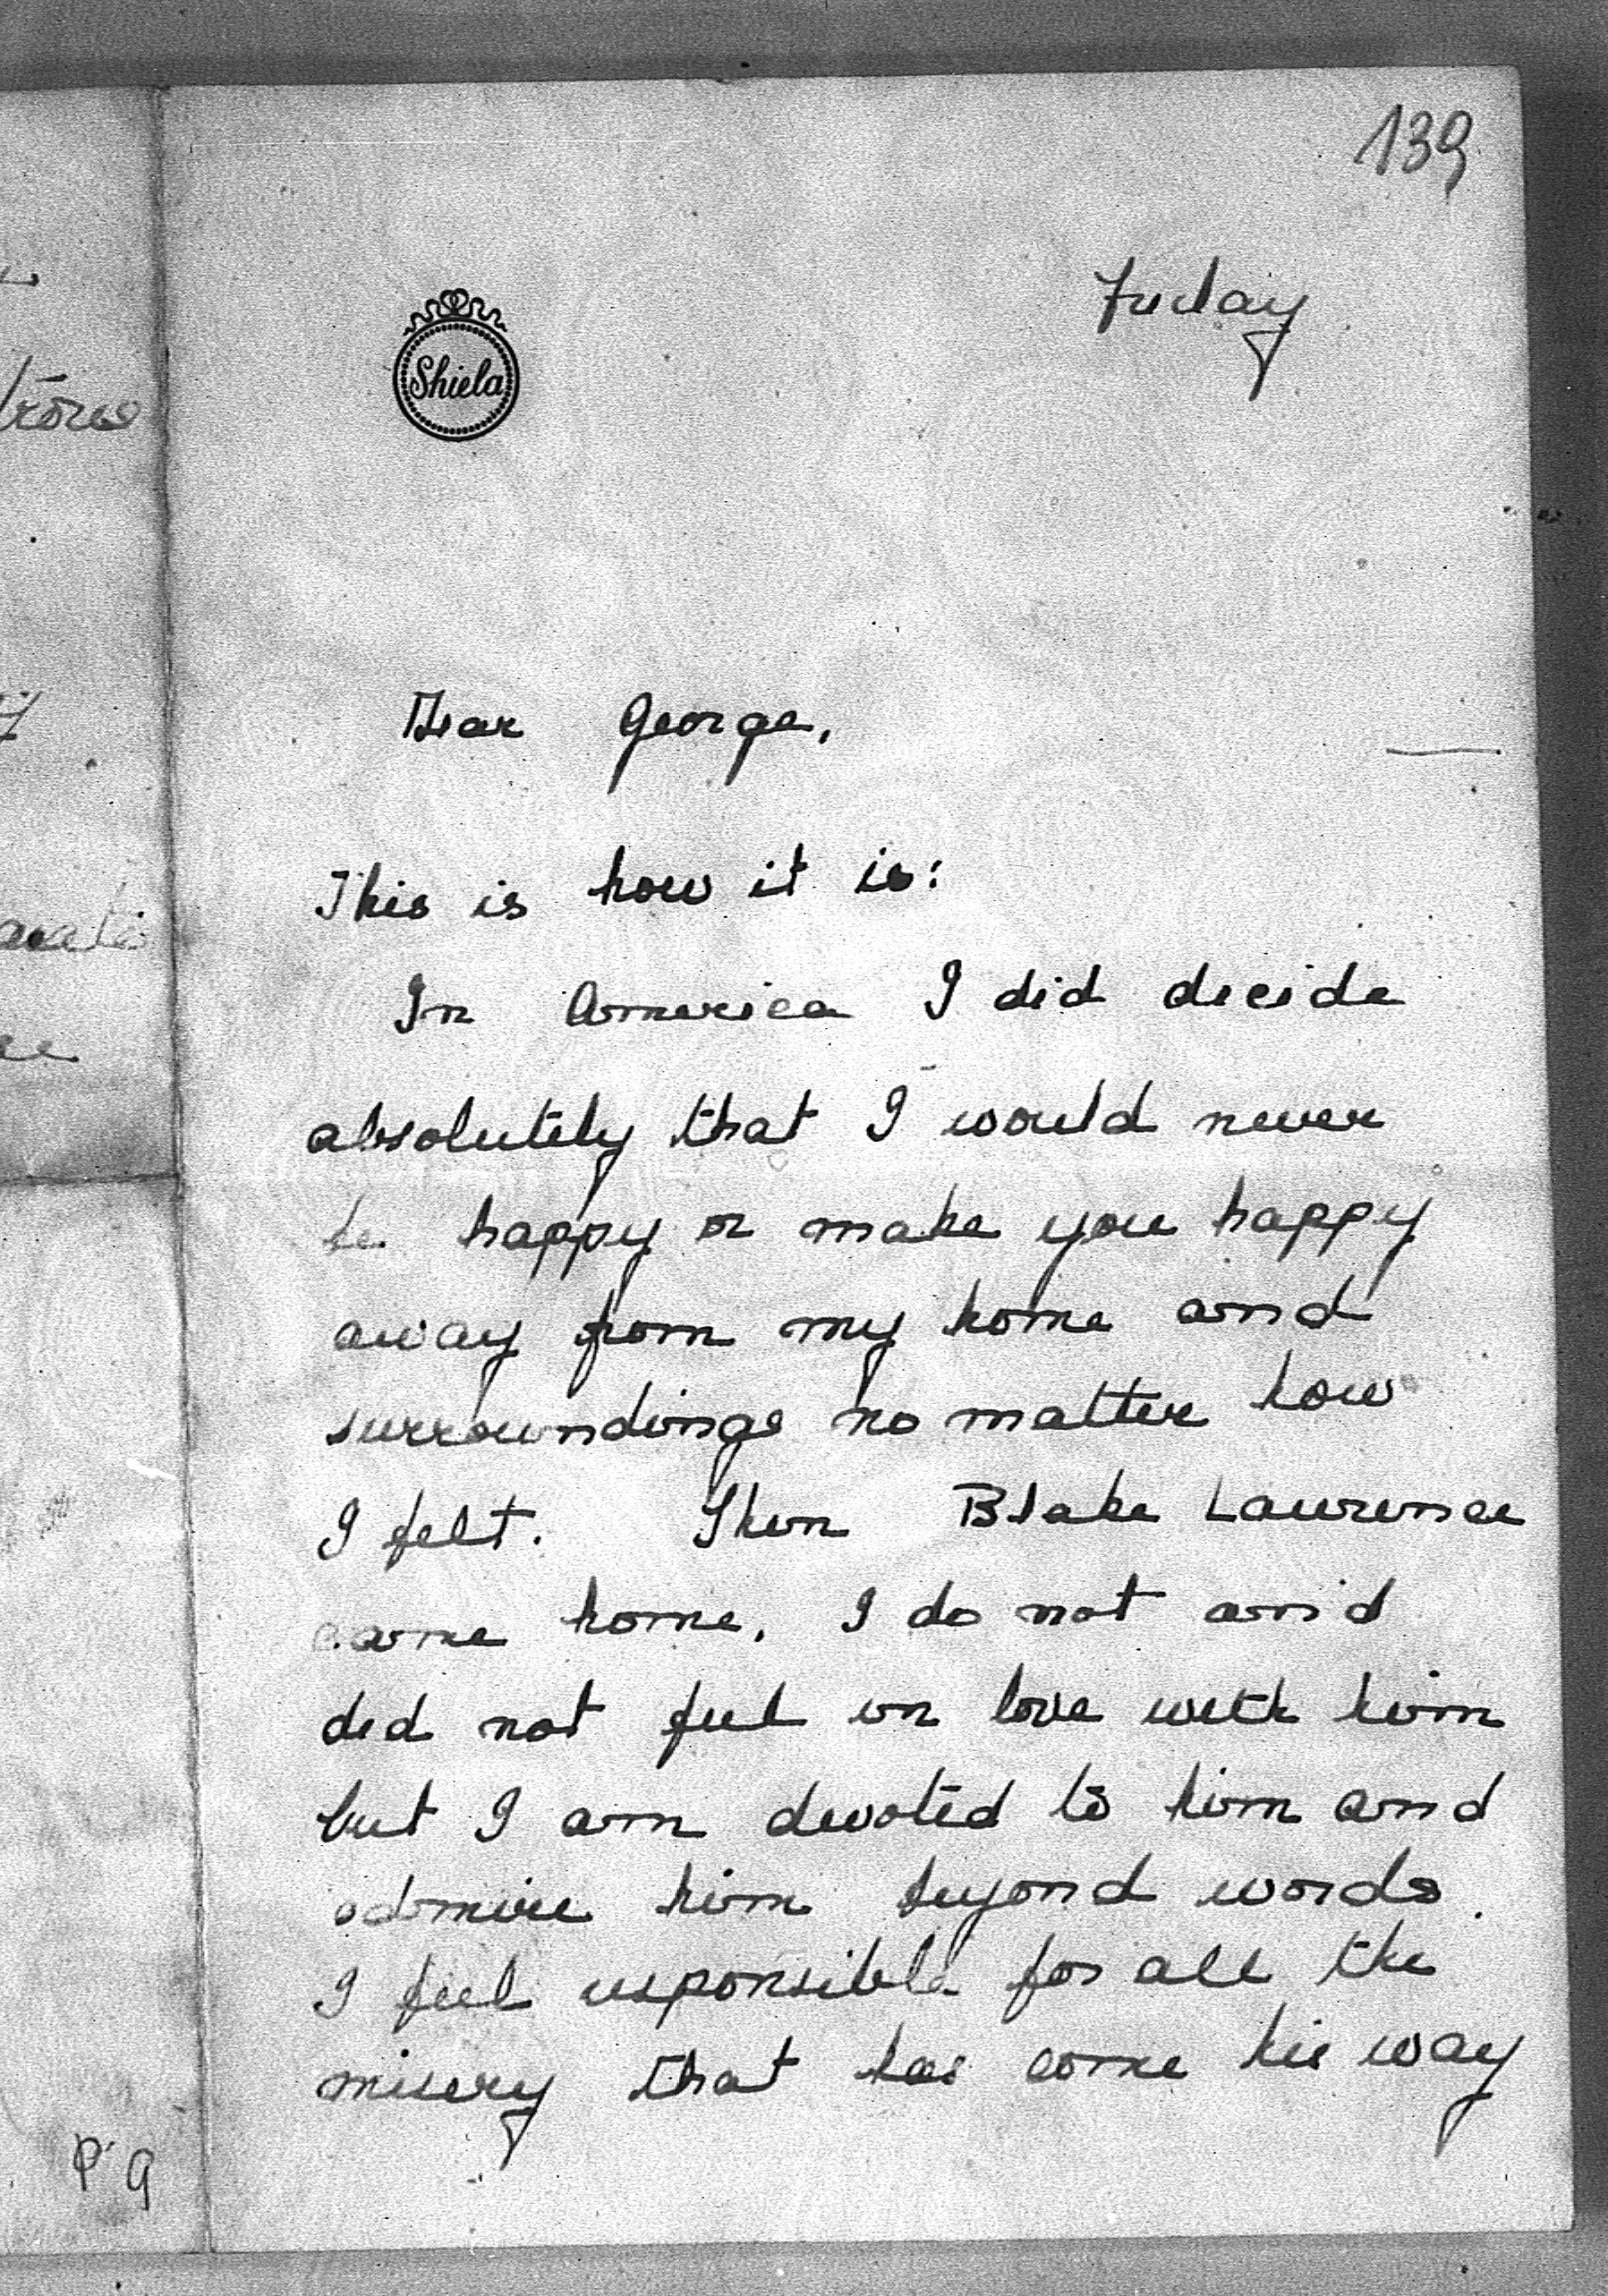 139
Friday
Shiela
Dear George,
This is how it is:
In America I did decide
absolutely that I would never
be happy or make you happy
away from my home and
surroundings no matter how
I felt. Then Blake Lawrence
came home. I do not and
did not feel in love with him
but I am devoted to him and
admire him beyond words.
I feel responsible for all the
misery that has come his way